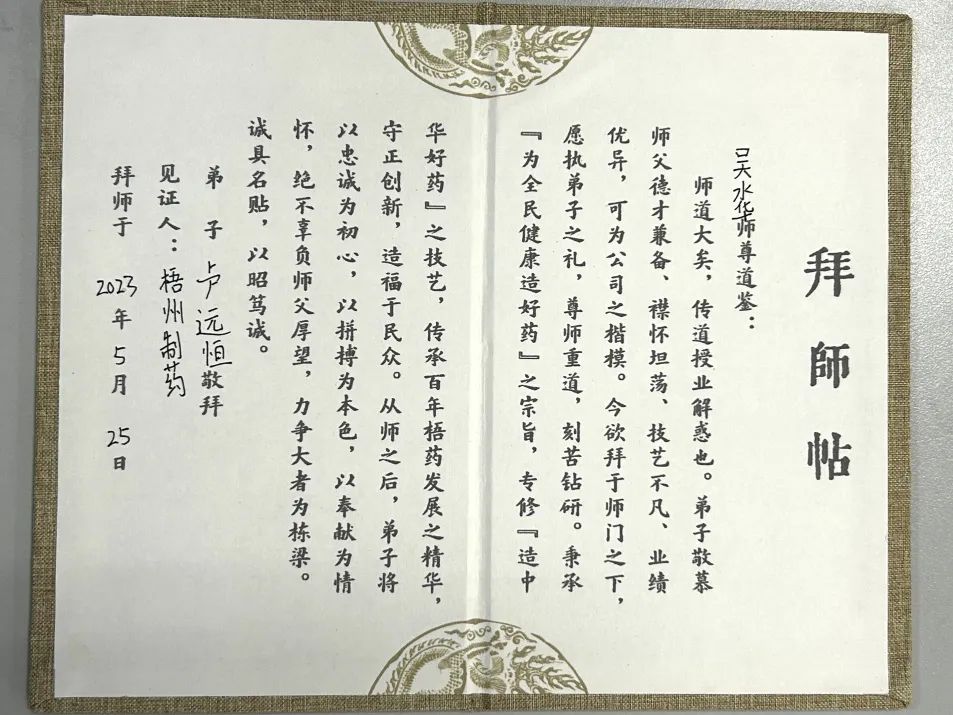 拜師帖
吴水华师尊道鉴：
师道大矣，传道授业解惑也。弟子敬慕
师父德才兼备、襟怀坦荡、技艺不凡、业绩
优异，可为公司之楷模。今欲拜于师门之下，
愿执弟子之礼，尊师重道，刻苦钻研。秉承
『为全民健康造好药』之宗旨，专修『造中
华好药』之技艺，传承百年梧药发展之精华，
守正创新，造福于民众。从师之后，弟子将
以忠诚为初心，以拼搏为本色，以奉献为情
怀，绝不辜负师父厚望，力争大者为栋梁。
诚具名贴，以昭笃诚。
弟子 卢远恒敬拜
见证人：梧州制药
拜师于 2023年5月25日